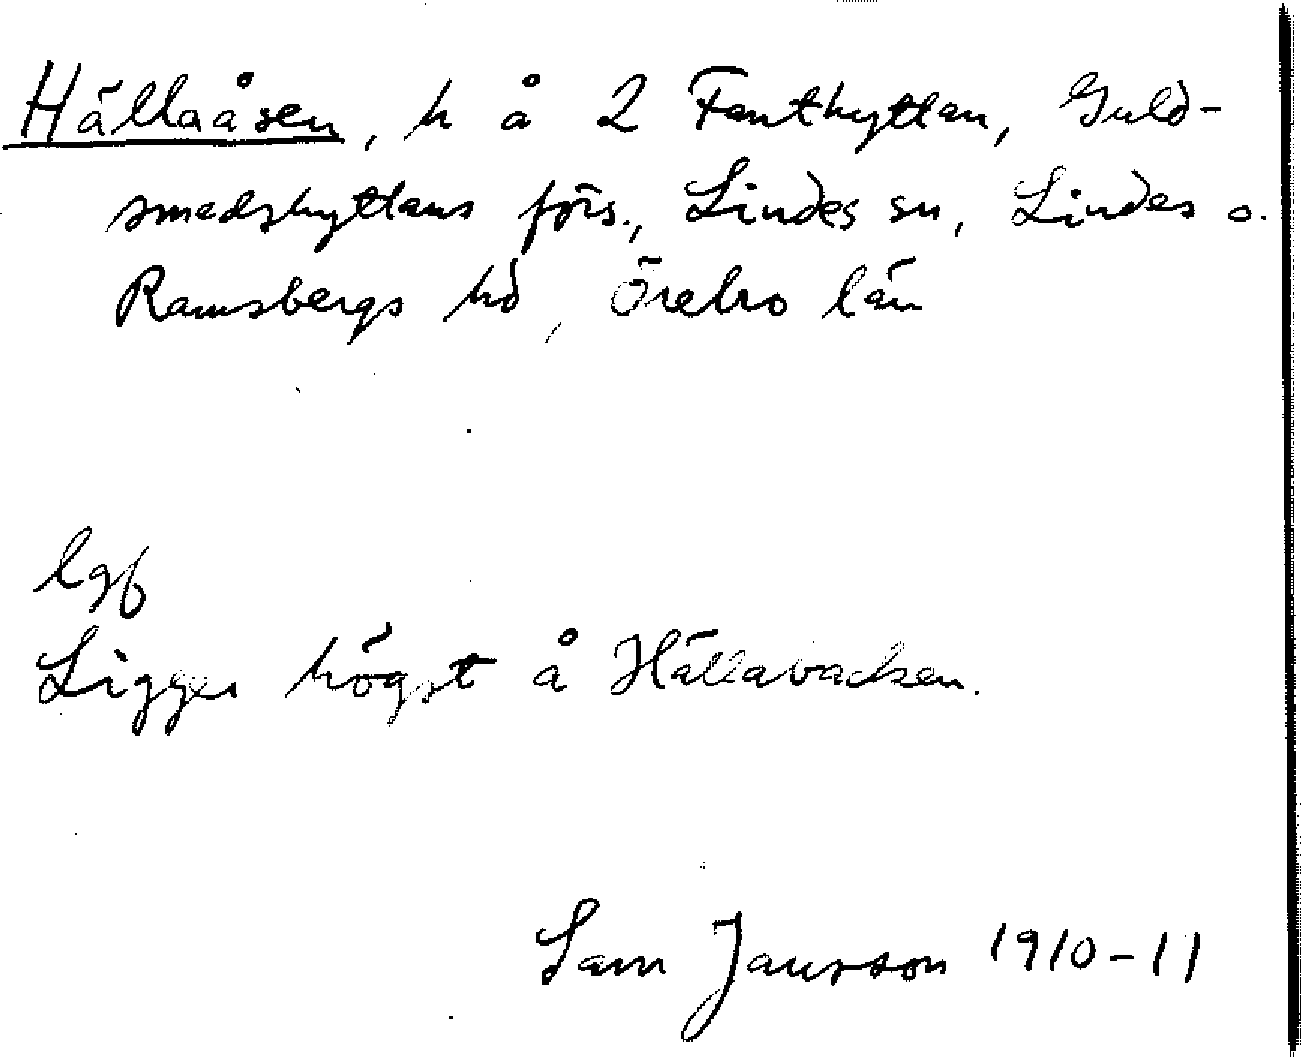 Hällaåsen, h å 2 Fanthyttan, Guld-
smedshyttans förs., Lindes sn, Lindes o.
Ramsbergs hd, Örebro län
lgf
Ligger högst å Hällabacken.
Sam Jansson 1910-11